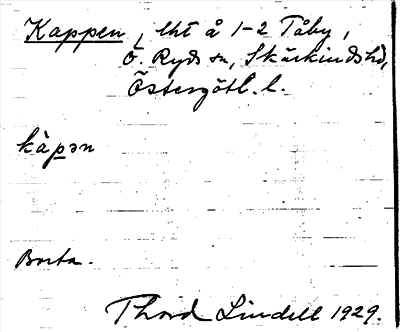 Kappen, lht å 1-2 Tåby,
Ö. Ryds sn, Skärkinds hd,
Östergötl. l.
kàpən
Borta.
Thord Lindell 1929.